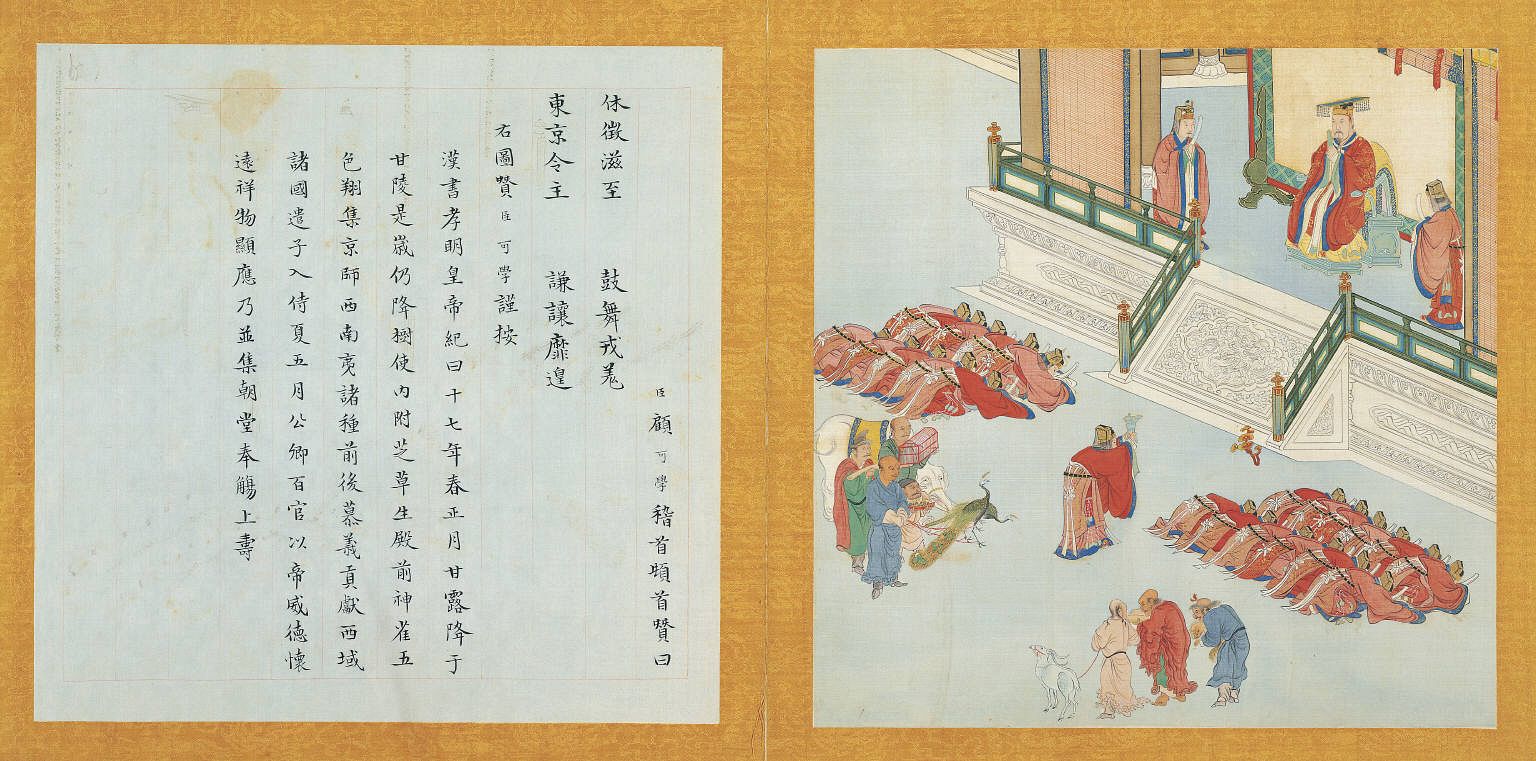 臣顧可學稽首頓首贊曰
休徵滋至　鼓舞戎羌
東京令主　謙讓靡遑
右圖贊臣可學謹按
漢書孝明皇帝紀曰十七年春正月甘露降于
甘陵是歲仍降樹使內附芝草生殿前神雀五
色翔集京師西南夷諸種前後慕義貢獻西域
諸國遣子入侍夏五月公卿百官以帝威德懷
遠祥物顯應乃並集朝堂奉觴上壽